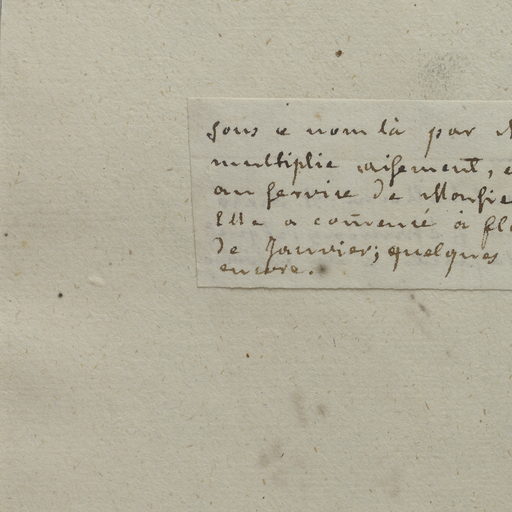 sous ce nom là par
multiplie aisement,
au service de Monsie
Elle a com̃encé à fl
de Janvier; quelques
encore.